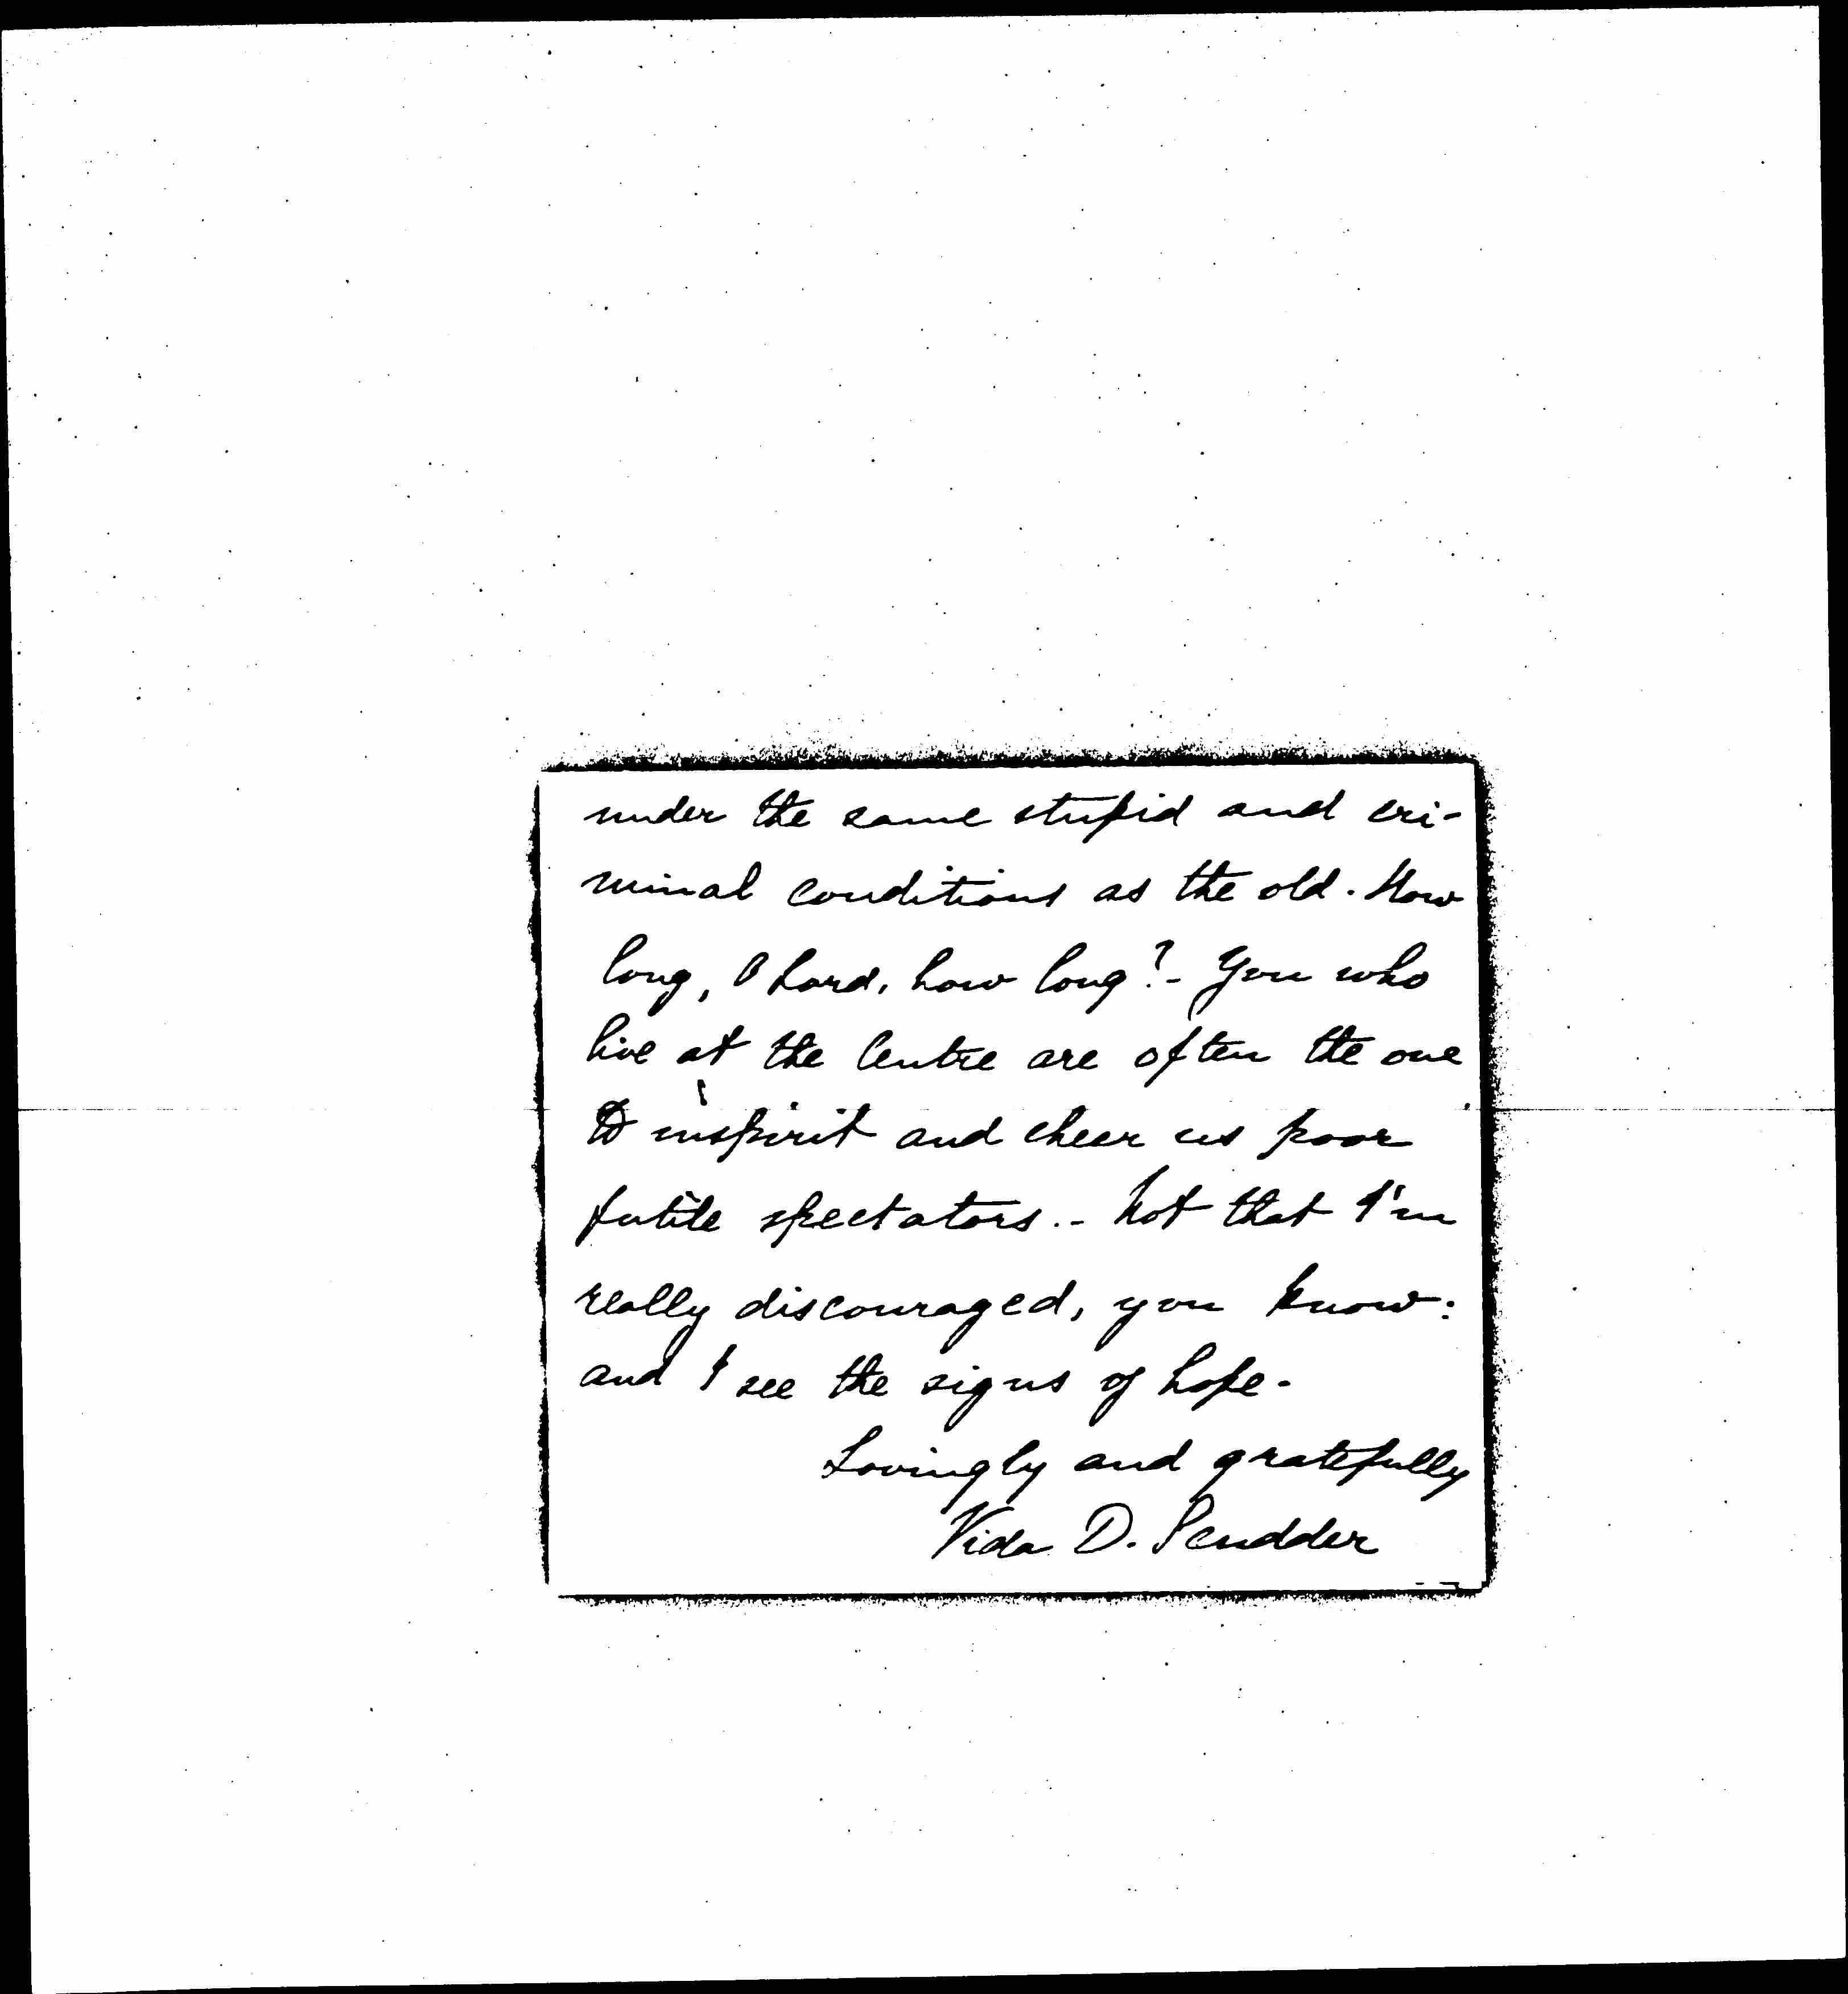 under the same stupid and cri-
minal conditions as the old. How
long, O Lord, how long? - You who
live at the centre are often the one
to inspirit and cheer us poor
futile spectators. - Not that I'm
really discouraged, you know:
and I see the signs of hope -
Lovingly and gratefully
Vida D. Scudder